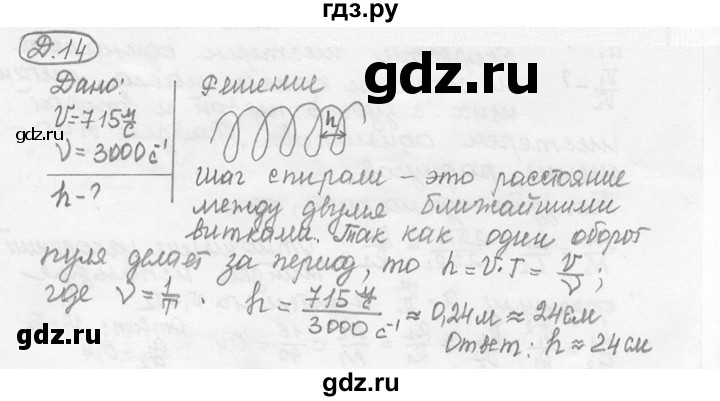 гдз.ру
Д.14
Дано:
V=715 м/с
ν=3000 с⁻¹
h-?
Решение
h
Шаг спирали - это расстояние
между двумя ближайшими
витками. Так как один оборот
пуля делает за период, то h=V·T=V/ν;
где ν=1/T. h=715 м/с / 3000 с⁻¹ ≈ 0,24м ≈ 24см
Ответ: h≈24см
gdz.ru
gdz.ru
gdz.ru
gdz.ru
gdz.ru
gdz.ru
gdz.ru